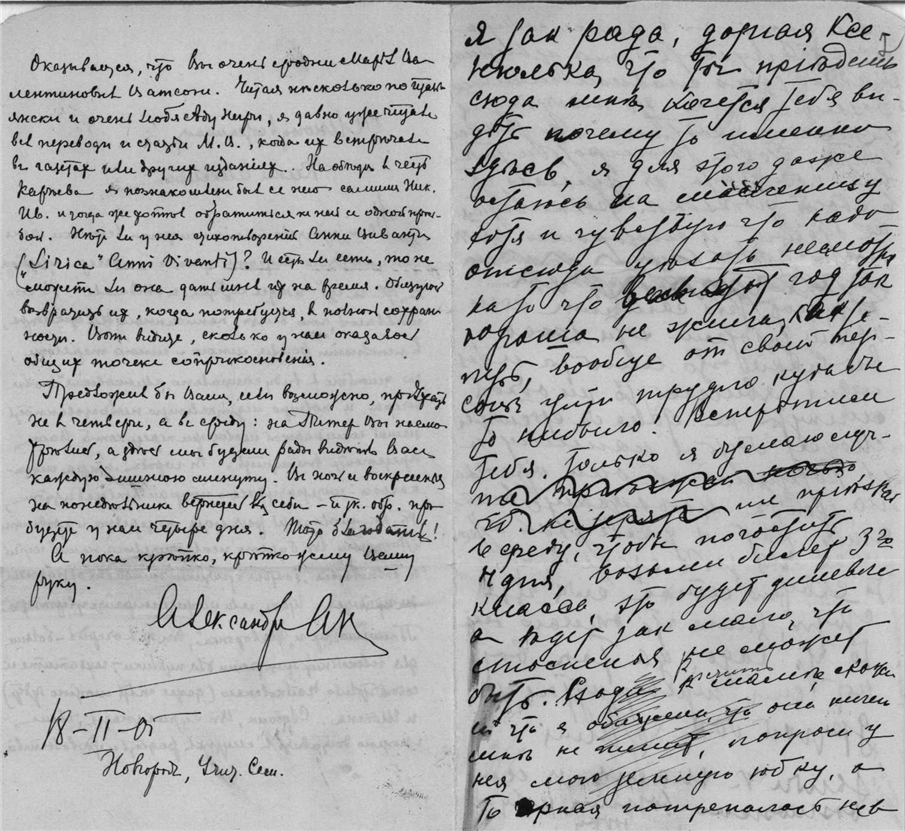 Оказывается, что Вы очень сродни Марiѣ Ва-
лентиновнѣ Ватсонъ. Читая нѣсколько по италь-
янски и очень любя Аду Негри, я давно уже читаю
всѣ переводы и статьи М. В., когда их встрѣчаю
въ газетах или других изданiях. На обѣдѣ въ честь
Карѣева я познакомленъ был с нею самимъ Ник.
Ив. и тогда же хотѣлъ обратиться к ней с одной прось-
бой. Нѣтъ ли у нея стихотворенiй Анни Виванти
("Lirica" Anni Vivanti)? И если есть, то не
может ли она дать мнѣ их на время. Обязуюсь
возвратить их, когда потребуется, в полной сохран-
ности. Вот видите, сколько у нас оказалось
общих точекъ соприкосновенiя.
Предложил бы Вам, если возможно, прiѣхать
не в четверг, а в среду: на Питер Вы насмо-
трѣлись, а здѣсь мы будем рады видѣть Вас
каждую лишнюю минуту. В ночь с воскресенья
на понедѣльникъ вернетесь к себѣ – и т. обр. про-
будете у нас четыре дня. То-то благодать!
А пока крѣпко, крѣпко жму Вашу
руку.
Александръ Ак
18–II–05
Новгород, Учит. Сем.
Я так рада, дорная Ксе-
нюлька, что ты прiѣдешь
сюда мнѣ хочется тебя ви-
дѣть почему то именно
здѣсь, я для этого даже
остаюсь на масленицу
хотя и чувствую что надо
отсюда уѣхать несмотря
на то что год так
хорошо не жила, как те-
перь, вообще от своей
уйти трудно куда бы
то нибыло. Встрѣтим
тебя. Только я думаю луч-
ше прiѣзжай
въ среду, чтобы погостить
4 дня, возьми билет 3го
класса, это будет дешевле
а ѣзды так мало, что
опасенiя не может
быть. Когда к мамѣ, скажи
ей что я обижена, что она ничего
мнѣ не пишет, попроси у
нея мою юбку, а
то черная потрепалась